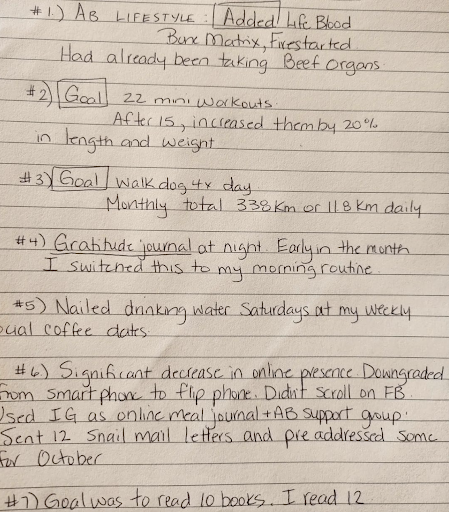 #1.) AB LIFESTYLE: Added Life Blood
Bone Matrix, Firestarted
Had already been taking Beef Organs.
#2) Goal 22 mini workouts.
After 15, increased them by 20%
in length and weight
#3) Goal walk dog 4x day
Monthly total 338 km or 11.8 km daily
#4) Gratitude journal at night. Early in the month
I switched this to my morning routine.
#5) Nailed drinking water Saturdays at my weekly
dates
#6) Significant decrease in online presence. Downgraded
from smart phone to flip phone. Didn't scroll on FB.
Used IG as online meal journal + AB support group.
Sent 12 snail mail letters and pre addressed some
for October
#7) Goal was to read 10 books. I read 12